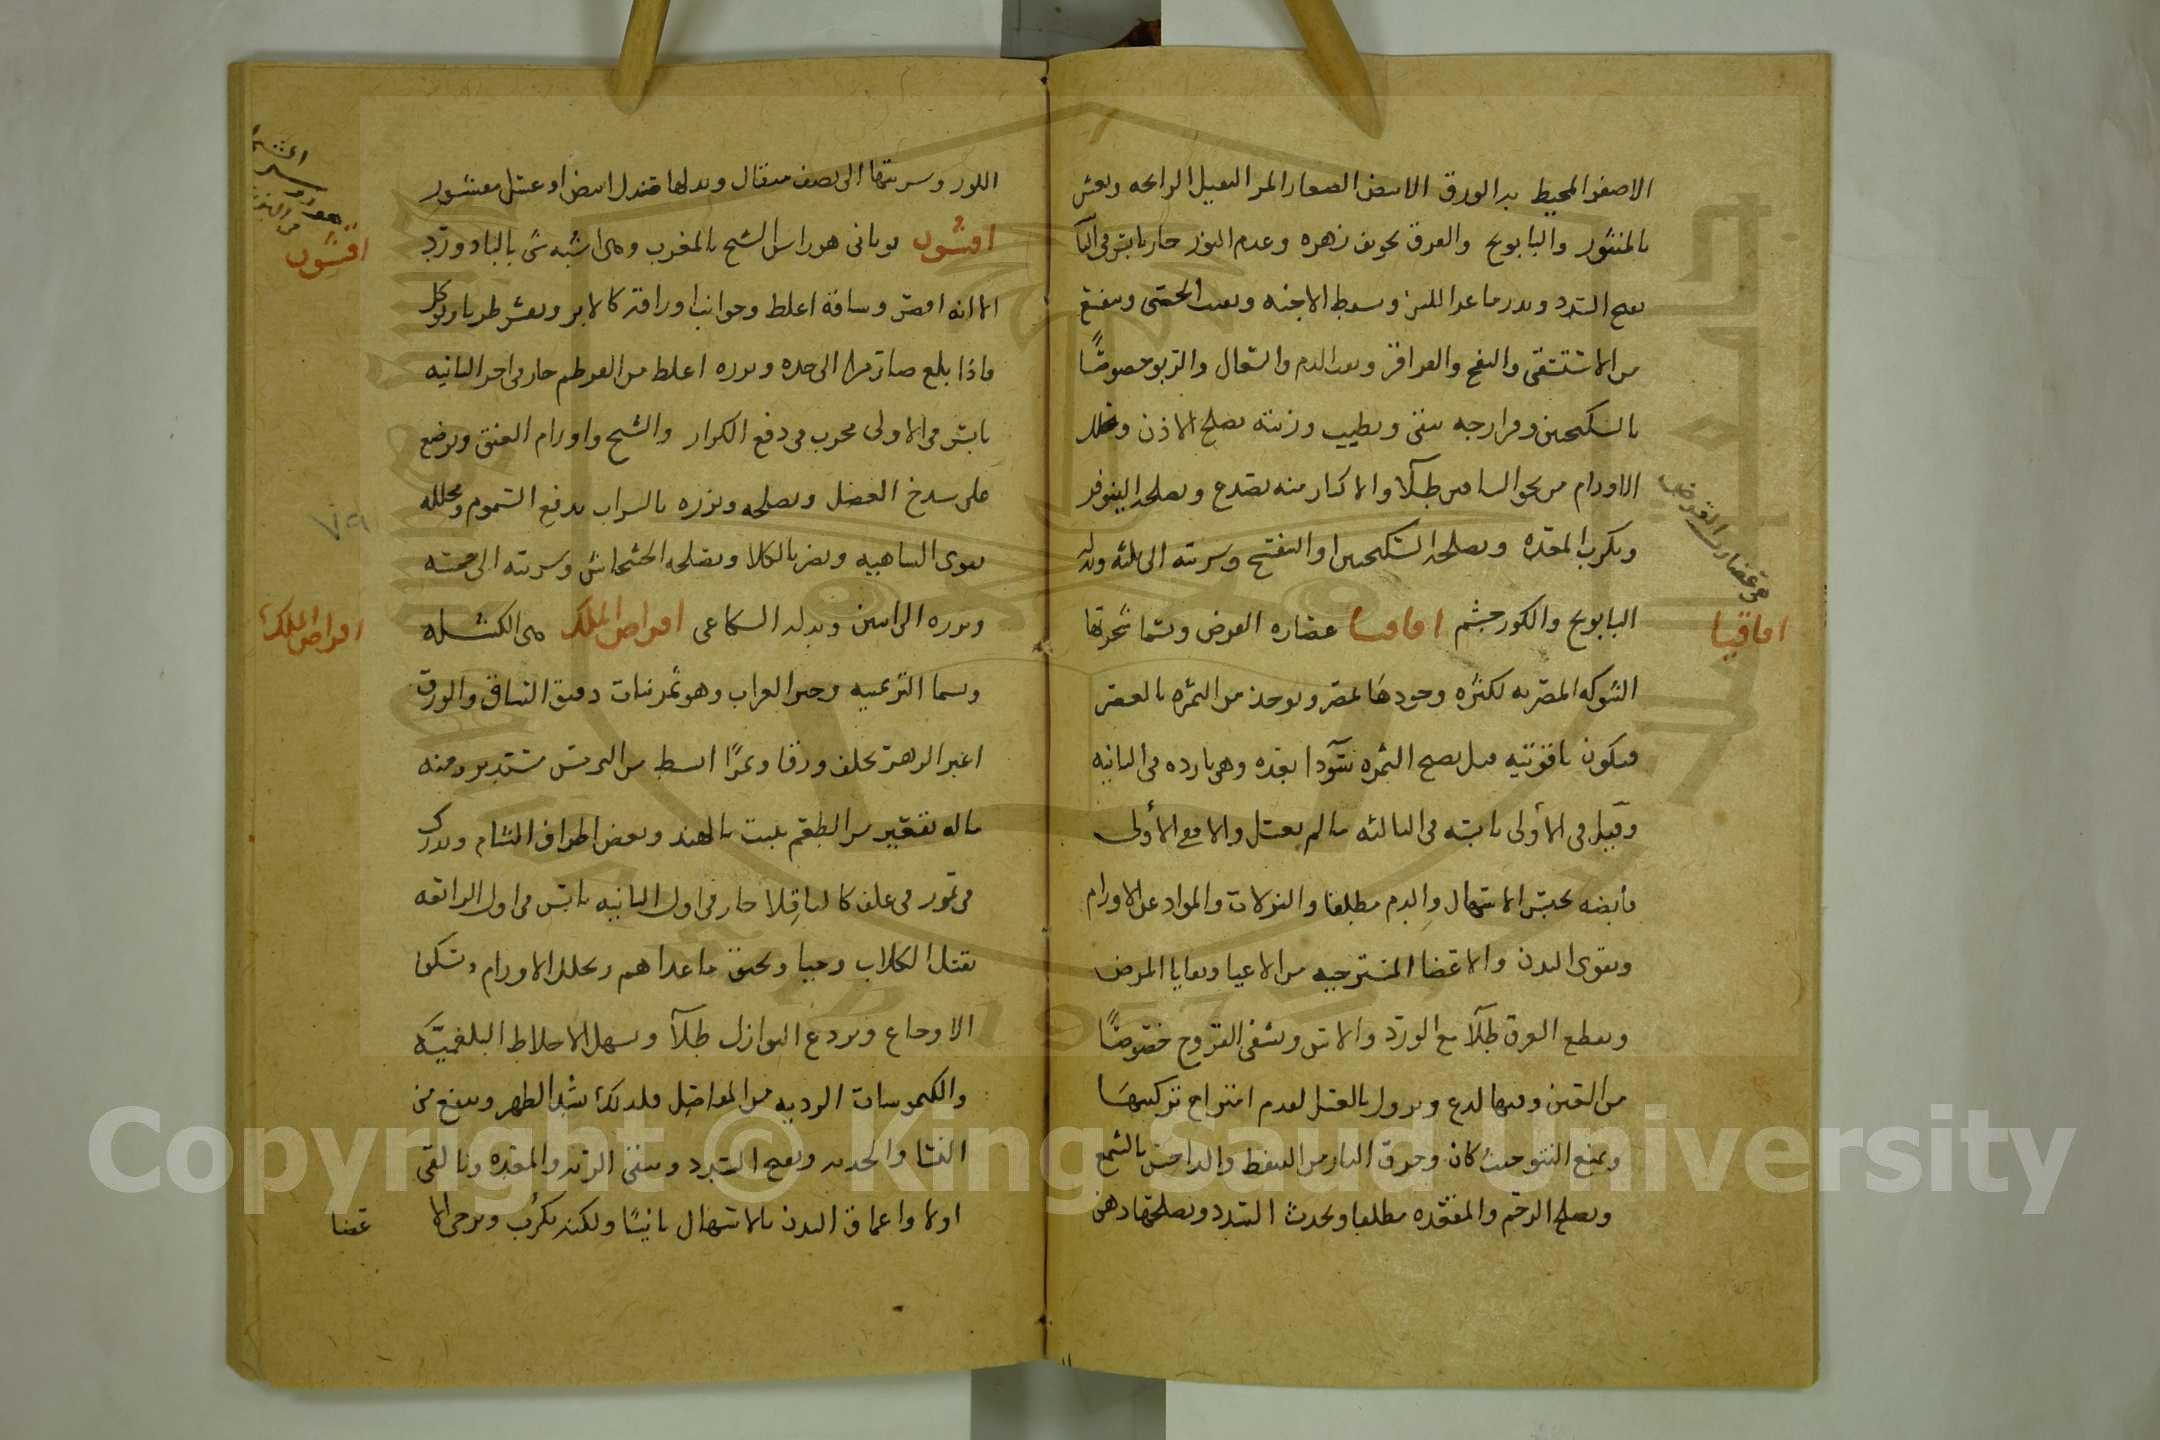 الاصفر المحيط به الورق الابيض الصغار المر الثقيل الرائحه ويغش
بالمنثور والبابونج والفرق تجويف زهره وعدم البزر حار يابس في
يفتح السدد ويدر ما عدا اللبن ويسقط الاجنه ويفتت الحصى وينفع
من الاستسقى والنفخ والفواق ونفث الدم والسعال والربو خصوصًا
بالسكنجبين وفرازجه تنقى وتطيب وزيته يصلح الاذن ويحلل
الاورام من نحو الساقين طلآ والاكثار منه يصدع ويصلحه النينوفر
ويكرب المعده ويصلحه السكنجبين او البنفسج وشربته الى ثلثه وبدله
البابونج والكور جشم اقاقيا عصاره القرض وتسما شجرتها
الشوكه المصريه لكثره وجودها بمصر ويوخذ من الثمره بالعصر
فيكون ياقوتيه قبل نضج الثمره سودا بعده وهي بارده في الثانيه
وقيل في الأولى يابسه في الثالثه ما لم يغسل والا ففي الأولى
قابضه تحبس الاسهال والدم مطلقا والنزلات والمواد عن الاورام
وتقوى البدن والاعضا المسترخيه من الاعيا وبقايا المرض
وتقطع العرق طلآ مع الورد والاس وتشفى القروح خصوصًا
من العين وفيها لدع ويزول بالغسل لعدم امتزاج تركيبها
وتمنع النتو حيث كان وحرق النار من التنفط والداحس بالشمع
وتصلح الرحم والمقعده مطلقا وتحدث السدد ويصلحها دهن
هو عصارت القرض
اقاقيا
اللوز وشربتها الى نصف مثقال وبدلها صندل ابيض او عدس مقشور
اقسون يونانى هو راس الشيح بالمغرب وهى اشبه شى بالباداورد
الا انه اقصر وساقه اغلظ وجوانب اوراقه كالابر ويقشر طريا ويوكل
فاذا بلغ صار مرا الى حده وبزره اغلظ من القرطم حار فى اخر الثانيه
يابس فى الاولى مجرب فى دفع الكزاز والتشنج واورام العنق ويوضع
على شدخ العضل ويصلحه وبزره بالشراب يدفع السموم ويحلله
يقوى الشاهيه ويضر بالكلا ويصلحه الخشخاش وشربته الى خمسه
وبزره الى اثنين وبدله الشكاعى اقراص الملك هى الكنثله
وتسما الترعبيه وخبز الغراب وهو ثمر نبات دقيق الساق والورق
اغبر الزهر يخلف ورقا وثمرًا ابسط من الترمس مستدير ومنه
ما له تقعير مر الطعم ينبت بالهند وبعض اطراف الشام ويدرك
فى تموز فى غلف كالباقلا حار فى اول الثانيه يابس فى اول الرابعه
يقتل الكلاب وحيا ويخنق ما عداهم ويحلل الاورام وتسكن
الاوجاع ويردع النوازل طلآ ويسهل الاخلاط البلغميه
والكيموسات الرديه من المفاصل فلذلك يشد الظهر وينفع من
النسا والحدبه ويفتح السدد وينقى الريه والمعده وبالقى
اولا واعماق البدن بالاسهال ثانيًا ولكنه يكرب ويرخى الا
عضا
اقسون
اقراص الملك